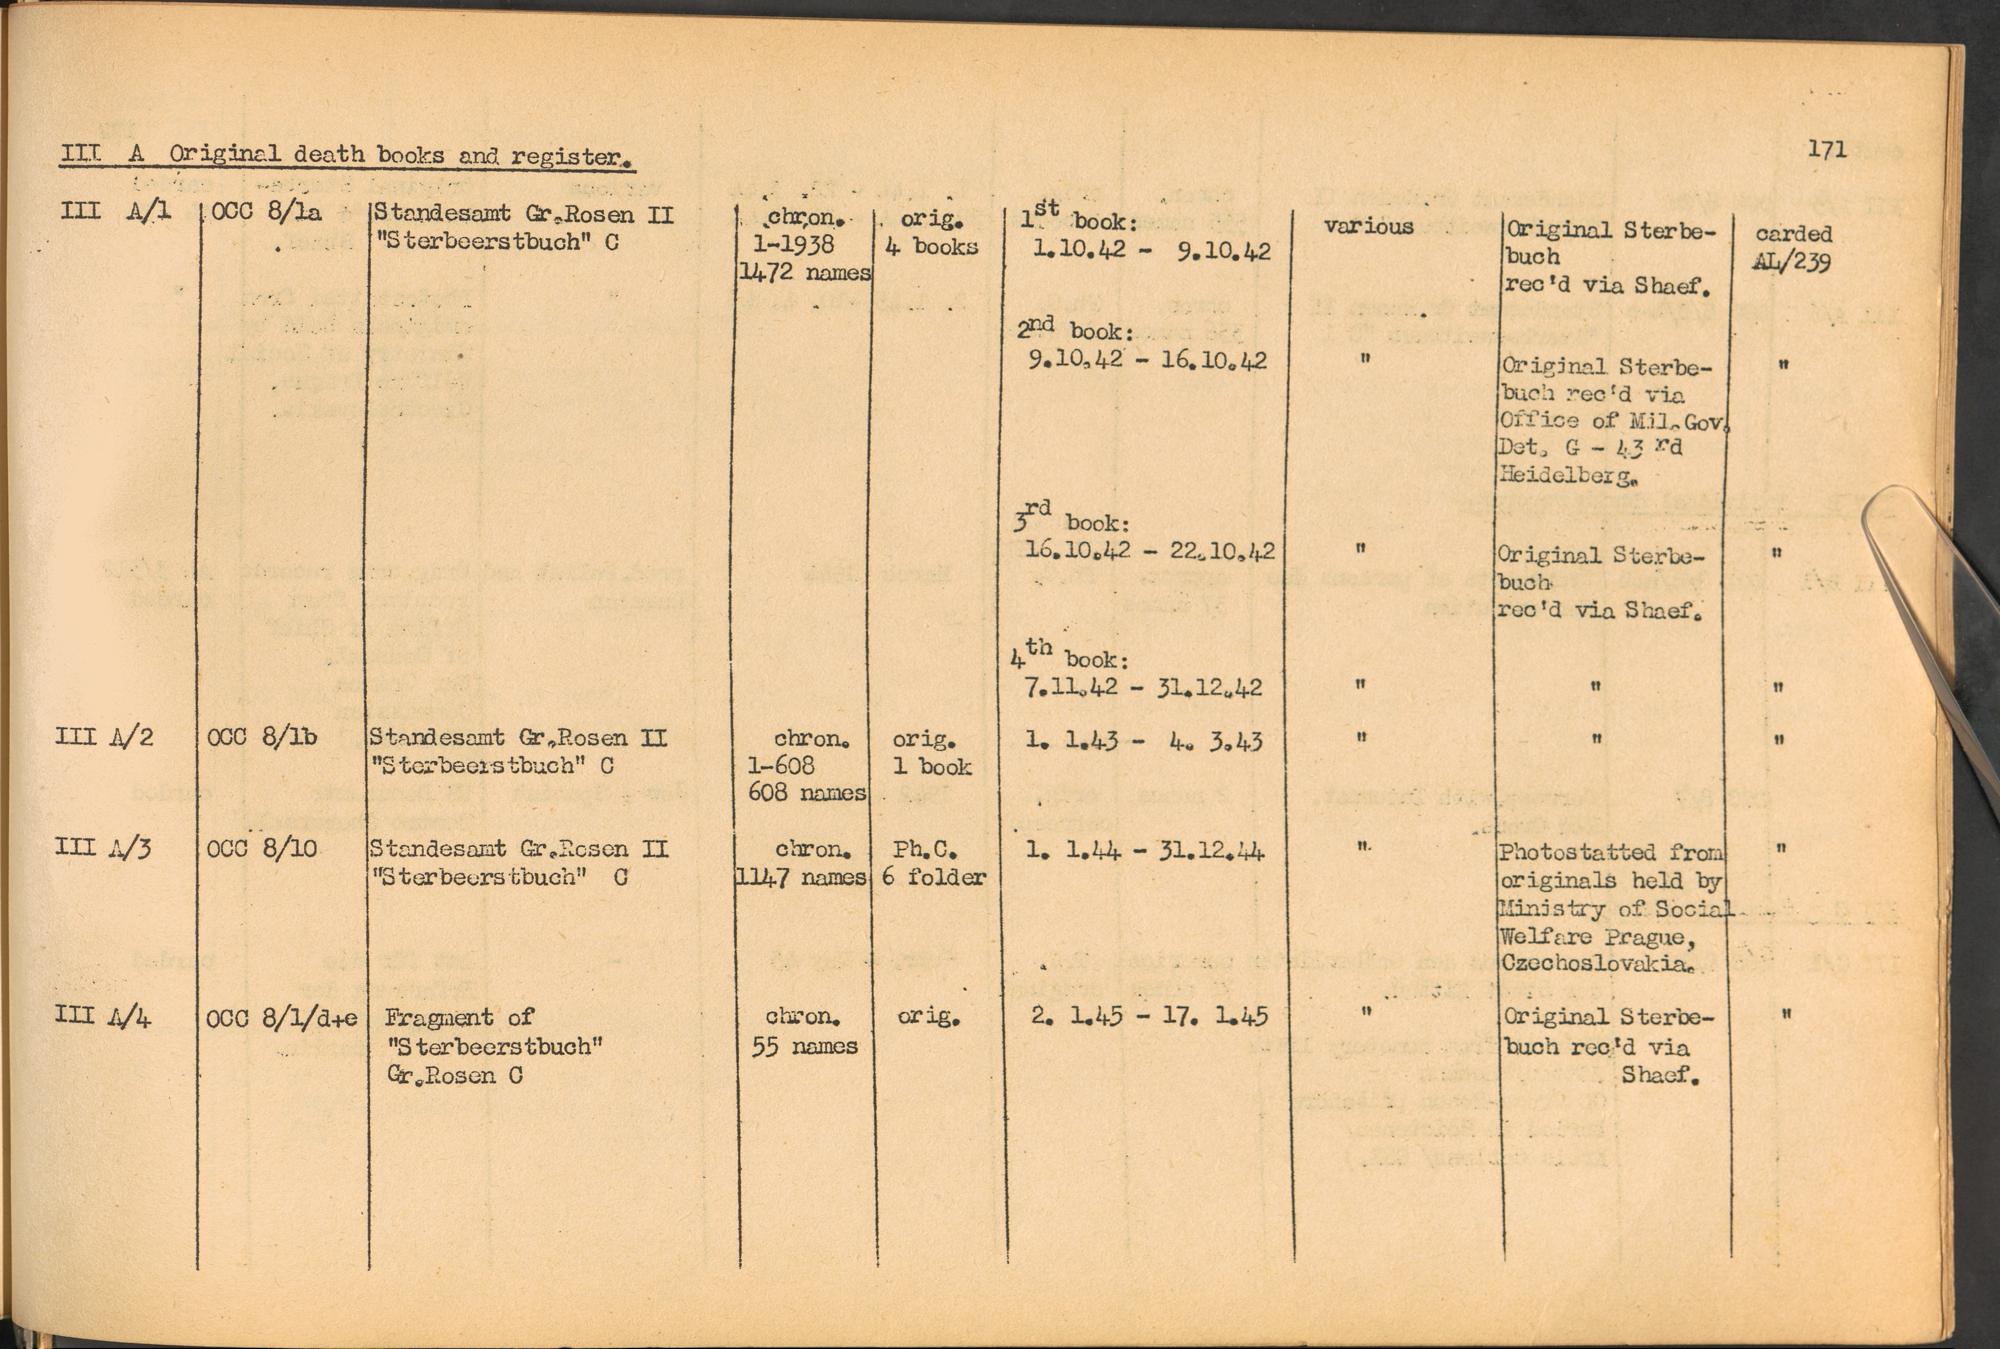 III A Original death books and register.
171
III A/1 OCC 8/1a Standesamt Gr.Rosen II chron. orig. 1st book: various Original Sterbe- carded
"Sterbeerstbuch" C 1-1938 4 books 1.10.42 - 9.10.42 buch AL/239
1472 names rec'd via Shaef.
2nd book:
9.10.42 - 16.10.42 " Original Sterbe- "
buch rec'd via
Office of Mil.Gov.
Det. G - 43 rd
Heidelberg.
3rd book:
16.10.42 - 22.10.42 " Original Sterbe- "
buch
rec'd via Shaef.
4th book:
7.11.42 - 31.12.42 " " "
III A/2 OCC 8/1b Standesamt Gr.Rosen II chron. orig. 1. 1.43 - 4. 3.43 " " "
"Sterbeerstbuch" C 1-608 1 book
608 names
III A/3 OCC 8/10 Standesamt Gr.Rosen II chron. Ph.C. 1. 1.44 - 31.12.44 " Photostatted from "
"Sterbeerstbuch" C 1147 names 6 folder originals held by
Ministry of Social
Welfare Prague,
Czechoslovakia.
III A/4 OCC 8/1/d+e Fragment of chron. orig. 2. 1.45 - 17. 1.45 " Original Sterbe- "
"Sterbeerstbuch" 55 names buch rec'd via
Gr.Rosen C Shaef.